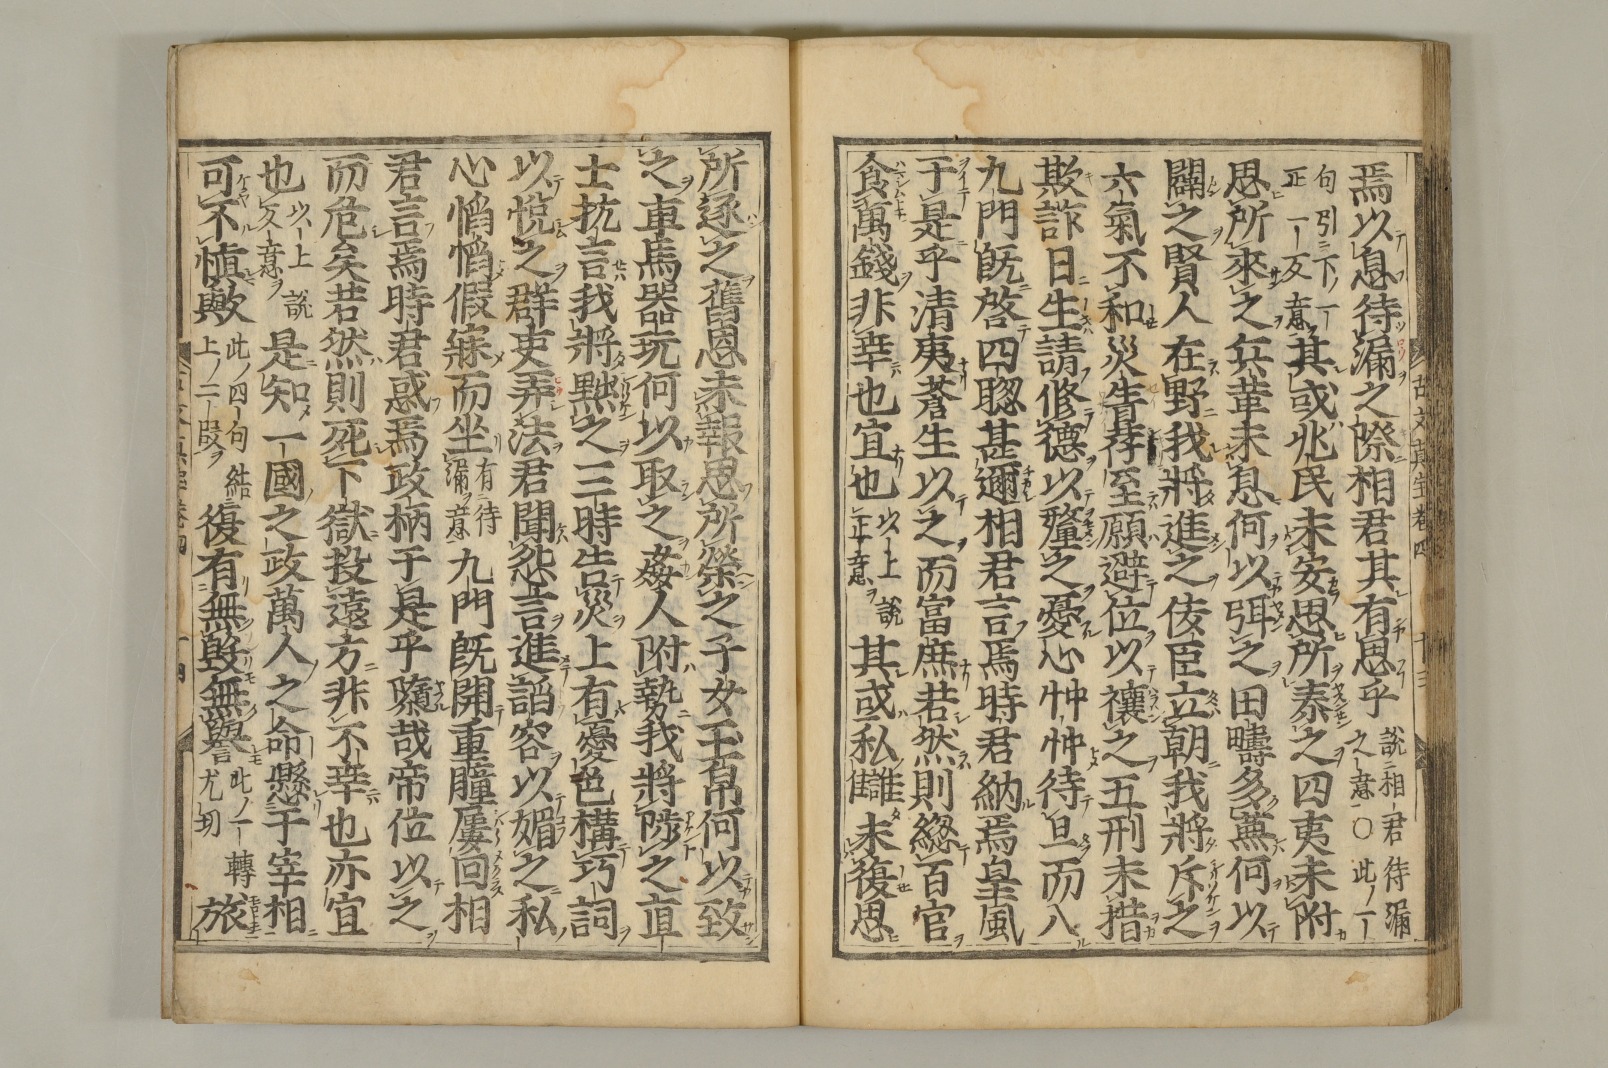 焉以息待漏之際相君其有思乎 說相君待漏之意〇此ノ一
句引下ノ一正一反意 其或兆民未安思所泰之四夷未附
思所來之兵革未息何以弭之田疇多蕪何以
闢之賢人在野我將進之佞臣立朝我將斥之
六氣不和災眚荐至願避位以禳之五刑未措
欺詐日生請修德以釐之憂心忡忡待旦而入
九門既啓四聰甚邇相君言焉時君納焉皇風
于是乎清夷蒼生以之而富庶若然則緫百官
食萬錢非幸也宜也 以上說正意 其或私讎未復思
古文真宝卷四 十三
所逐之舊恩未報思所榮之子女玉帛何以致
之車馬器玩何以取之姦人附勢我將陟之直
士抗言我將黜之三時告災上有憂色構巧詞
以悅之群吏弄法君聞怨言進謟容以媚之私
心慆慆假寐而坐 有待漏意 九門既開重瞳屢回相
君言焉時君惑焉政柄于是乎隳哉帝位以之
而危矣若然則死下獄投遠方非不幸也亦宜
也 以上說反意 是知一國之政萬人之命懸于宰相
可不慎歟 此ノ四句結上ノ二段 復有無毀無譽 此ノ一轉尤切 旅